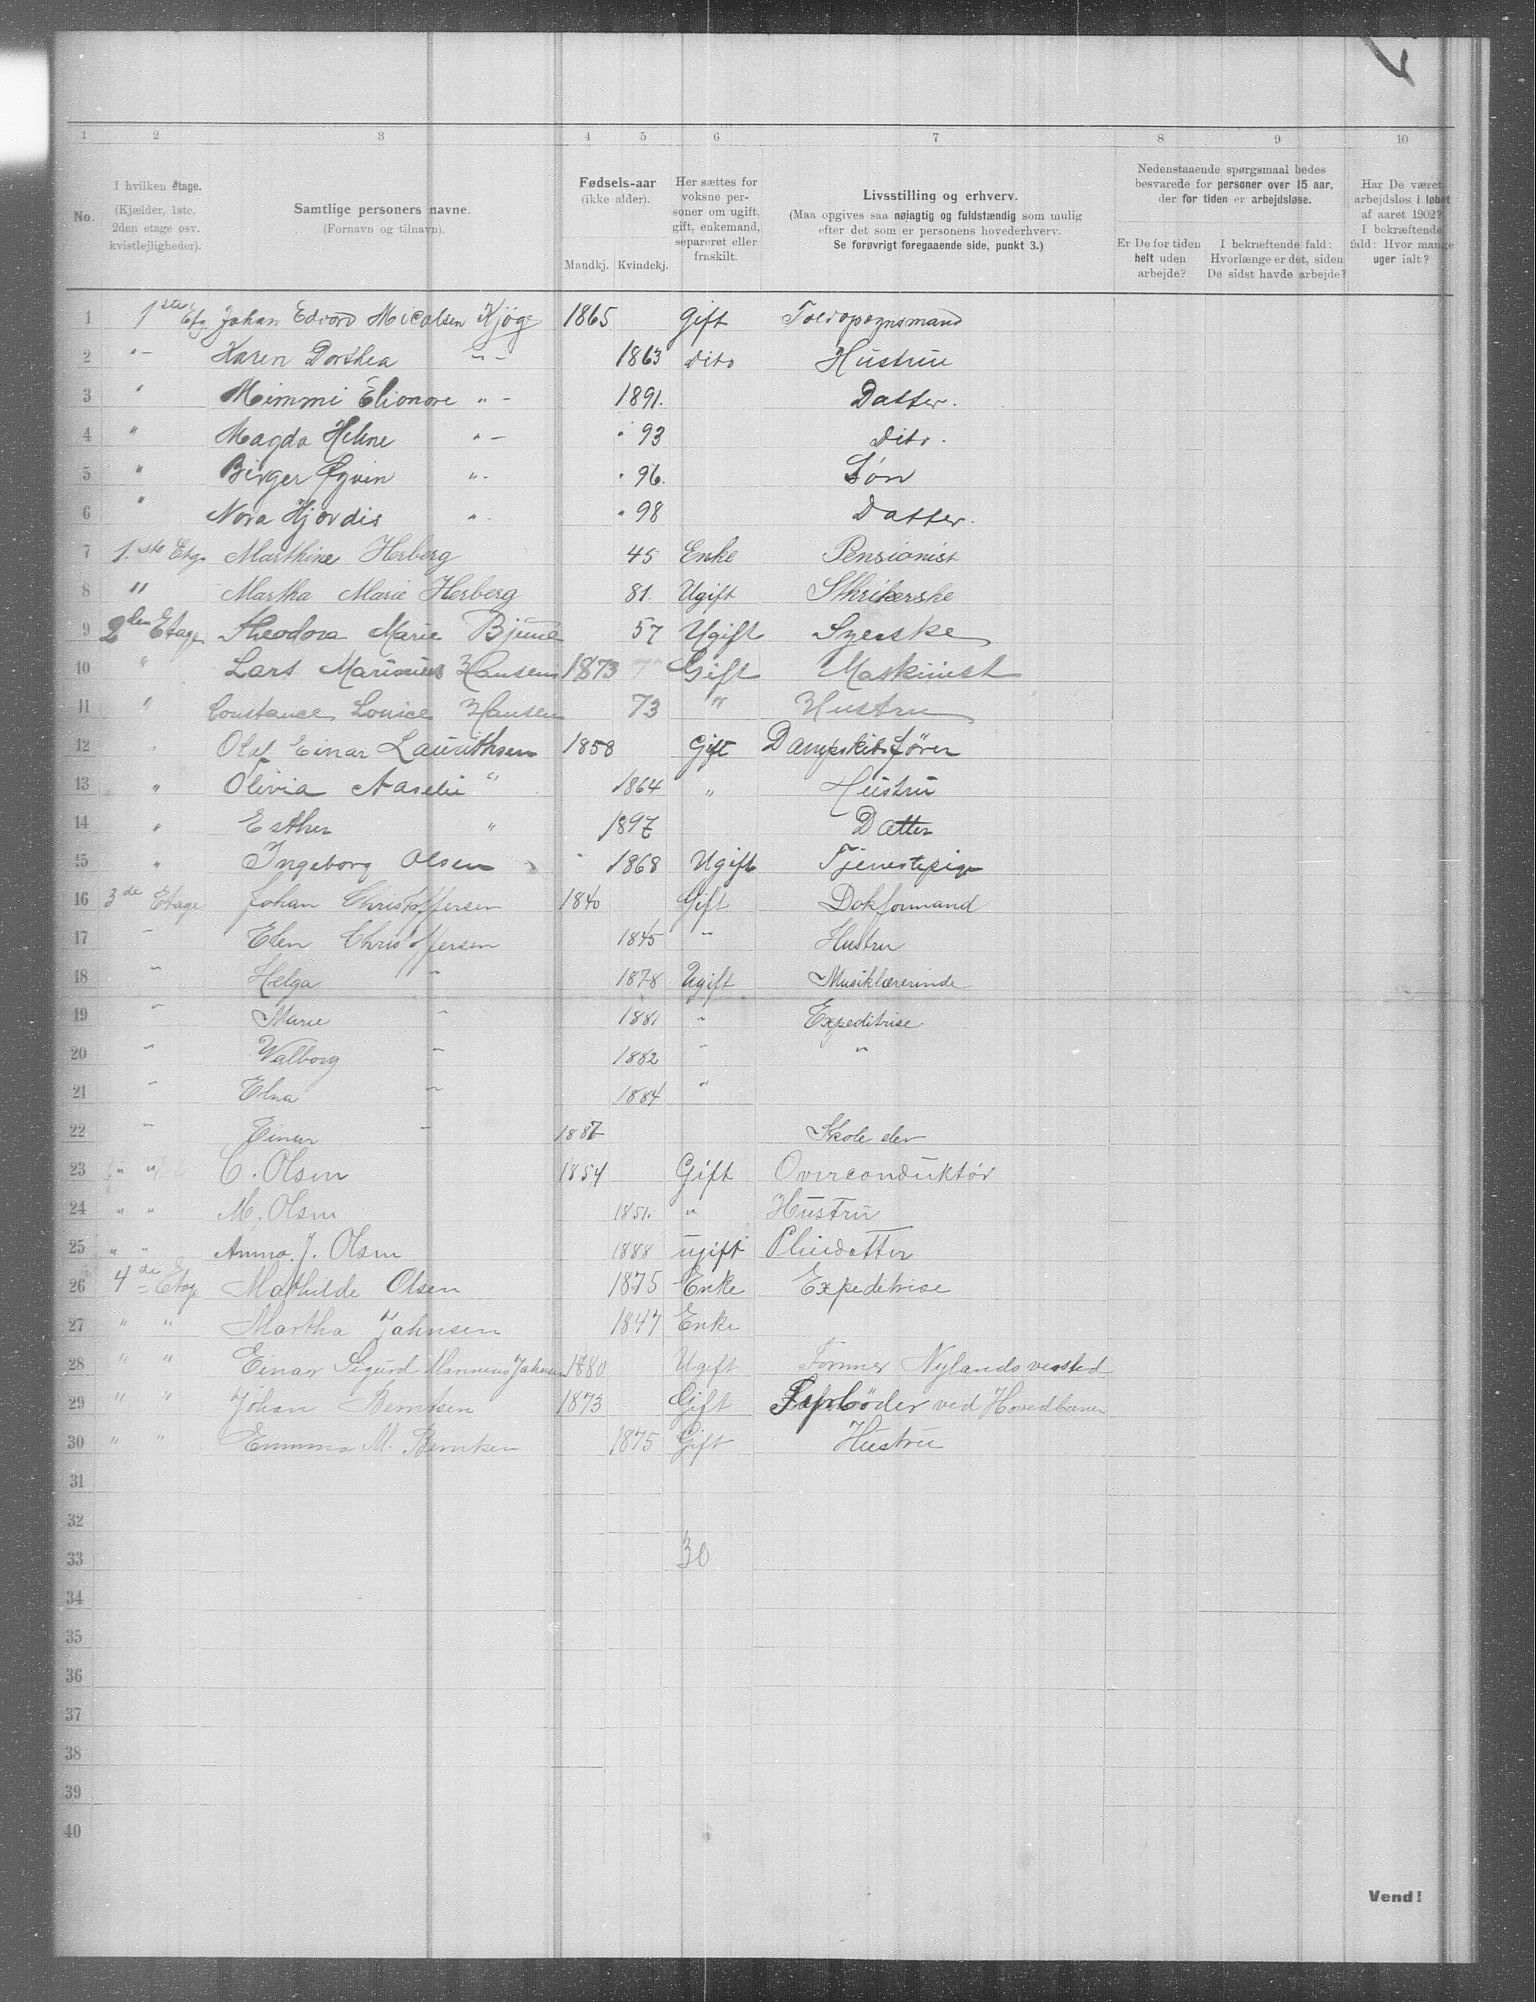 1 2 3 4 5 6 7 8 9 10
No.
I hvilken etage.
(Kjælder, 1ste.
2den etage osv.
kvistlejligheder).
Samtlige personers navne.
(Fornavn og tilnavn).
Fødsels-aar
(ikke alder).
Mandkj. Kvindekj.
Her sættes for
voksne per-
soner om ugift,
gift, enkemand,
separeret eller
fraskilt.
Livsstilling og erhverv.
(Maa opgives saa nøiagtig og fuldstændig som mulig
efter det som er personens hovederhverv.
Se forøvrigt foregaaende side, punkt 3.)
Nedenstaaende spørgsmaal bedes
besvarede for personer over 15 aar,
der for tiden er arbejdsløse.
Er De for tiden
helt uden
arbejde?
I bekræftende fald:
Hvorlænge er det, siden
De sidst havde arbejde?
Har De været
arbejdsløs i løbet
af aaret 1902?
I bekræftende
fald: Hvor mange
uger ialt?
1 1ste Etg Johan Edvard Micalsen Kjøge 1865 Gift
2 " - Karen Dorthea " - 1863 Dito Hustru
3 " Mimmi Elionore " - 1891. Datter.
4 " Magda Helene " - " 93 Dito.
5 " Birger Øgvin " - " 96. Søn
6 " Nora Hjørdis " - " 98 Datter.
7 1.ste Etg. Marthine Herberg 45 Enke Pensionist
8 " Martha Marie Herberg 81. Ugift
9 2den Etage Theodora Marie Bjune 57 Ugift Syerske
10 " Lars Marinius Hansen 1873 Gift Maskinist
11 " Constance Lovice Hansen 73 " Hustru
12 " Olaf Einar Laurithsen 1858 Gift Dampskibsfører
13 " Olivia Aaselie " 1864 " Hustru
14 " Esther " 1897 Datter
15 " Ingeborg Olsen 1868 Ugift Tjenestepige
16 3de Etage Johan Christoffersen 1840 Gift Dokformand
17 " Elen Christoffersen 1845 " Hustru
18 " Helga " 1878 Ugift Musiklærerinde
19 " Marie " 1881 " Expeditrise
20 " Valborg " 1882 " "
21 " Elna " 1884 "
22 " Einar " 1887 Skole elev
23 " " C. Olsen 1854 Gift Overconduktør
24 " " M. Olsen 1851. " Hustru
25 " " Anna J. Olsen 1888 ugift Pleiedatter
26 4de Etag Mathilde Olsen 1875 Enke Expeditrise
27 " " Martha Jahnsen 1847 Enke
28 " " Einar Sigurd Marinius Jahnsen 1880 Ugift Former Nylands versted
29 " " Johan Berntsen 1873 Gift ved Hovedbanen
30 " " Emma M. Berntsen 1875 Gift Hustru
31
32
33 30
34
35
36
37
38
39
40
Vend!